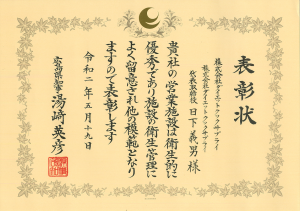 表彰状
株式会社ダイエットクックサプライ
代表取締役 日下義男 様
貴社の営業施設は衛生的に
優秀であり施設の衛生管理に
よく留意され他の模範となり
ますので表彰します
令和二年五月十九日
広島県知事
湯﨑英彦